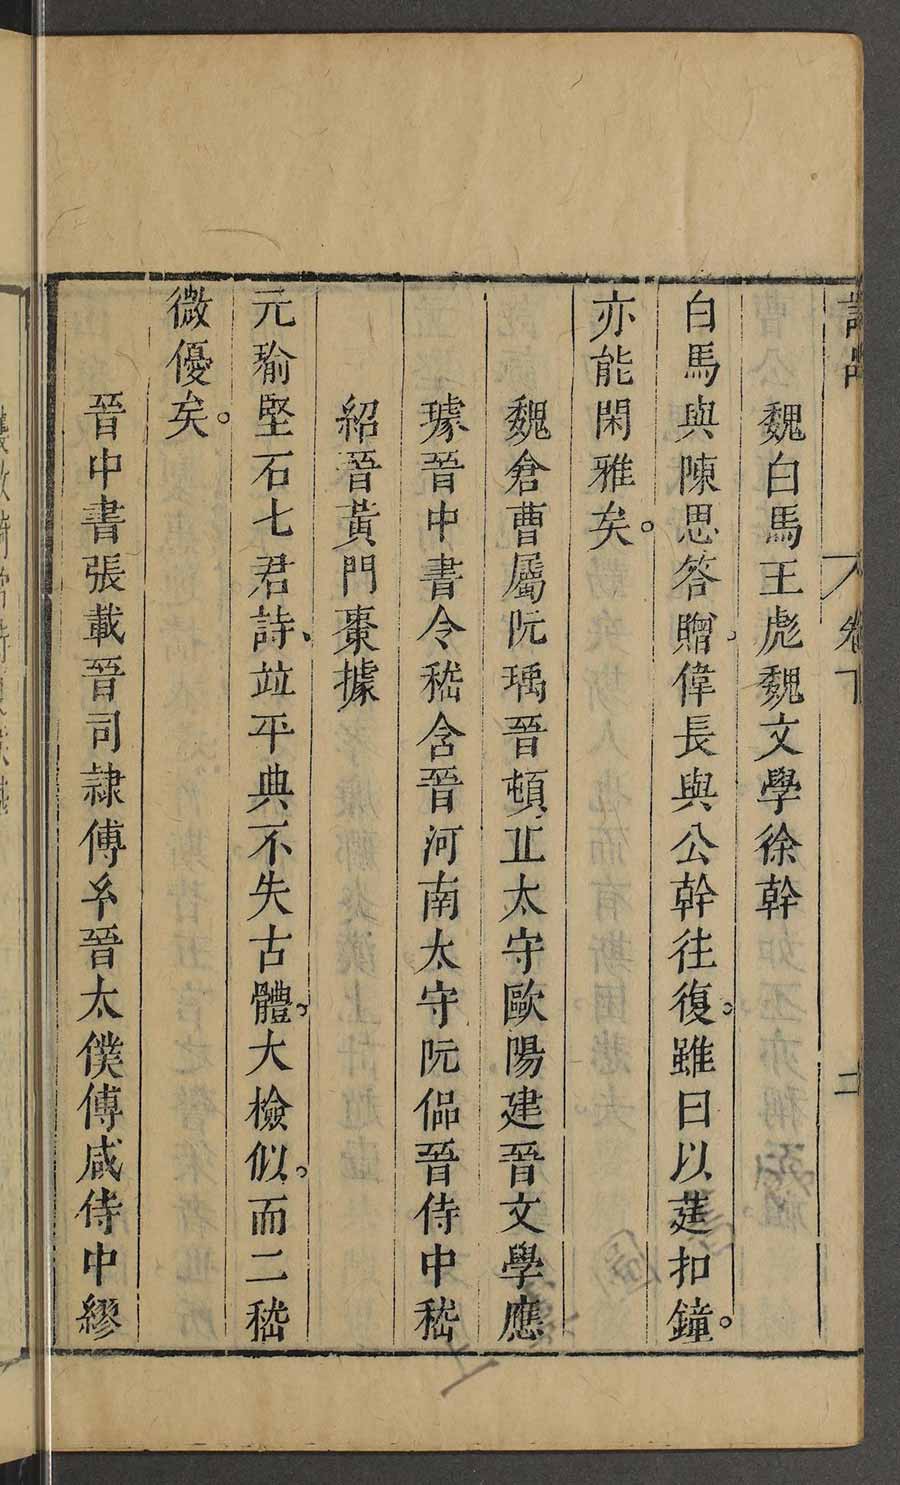 詩品 卷下 二
魏白馬王彪魏文學徐幹
白馬與陳思答贈。偉長與公幹往復。雖曰以莛扣鐘。
亦能閑雅矣。
魏倉曹屬阮瑀晉頓丘太守歐陽建晉文學應
璩晉中書令嵇含晉河南太守阮侃晉侍中嵇
紹晉黃門棗據
元瑜堅石七君詩、竝平典不失古體。大檢似。而二嵇
微優矣。
晉中書張載晉司隸傅玄晉太僕傅咸侍中繆